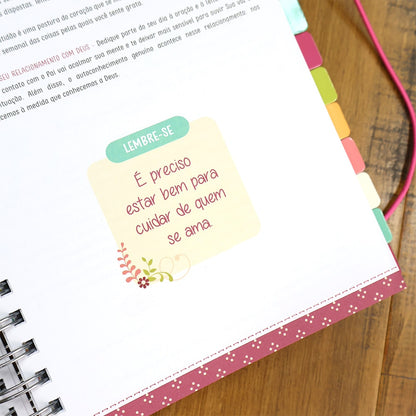 tidão é uma postura do coração que se
semanal das coisas pelas quais você sente grato.
SEU RELACIONAMENTO COM DEUS - Dedique parte do seu dia à oração e à
contato com o Pai vai acalmar sua mente e te deixar mais sensível para ouvir Sua voz
situação. Além disso, o autoconhecimento genuíno acontece nesse relacionamento: nos
conhecemos à medida que conhecemos a Deus.
LEMBRE-SE
É preciso
estar bem para
cuidar de quem
se ama.